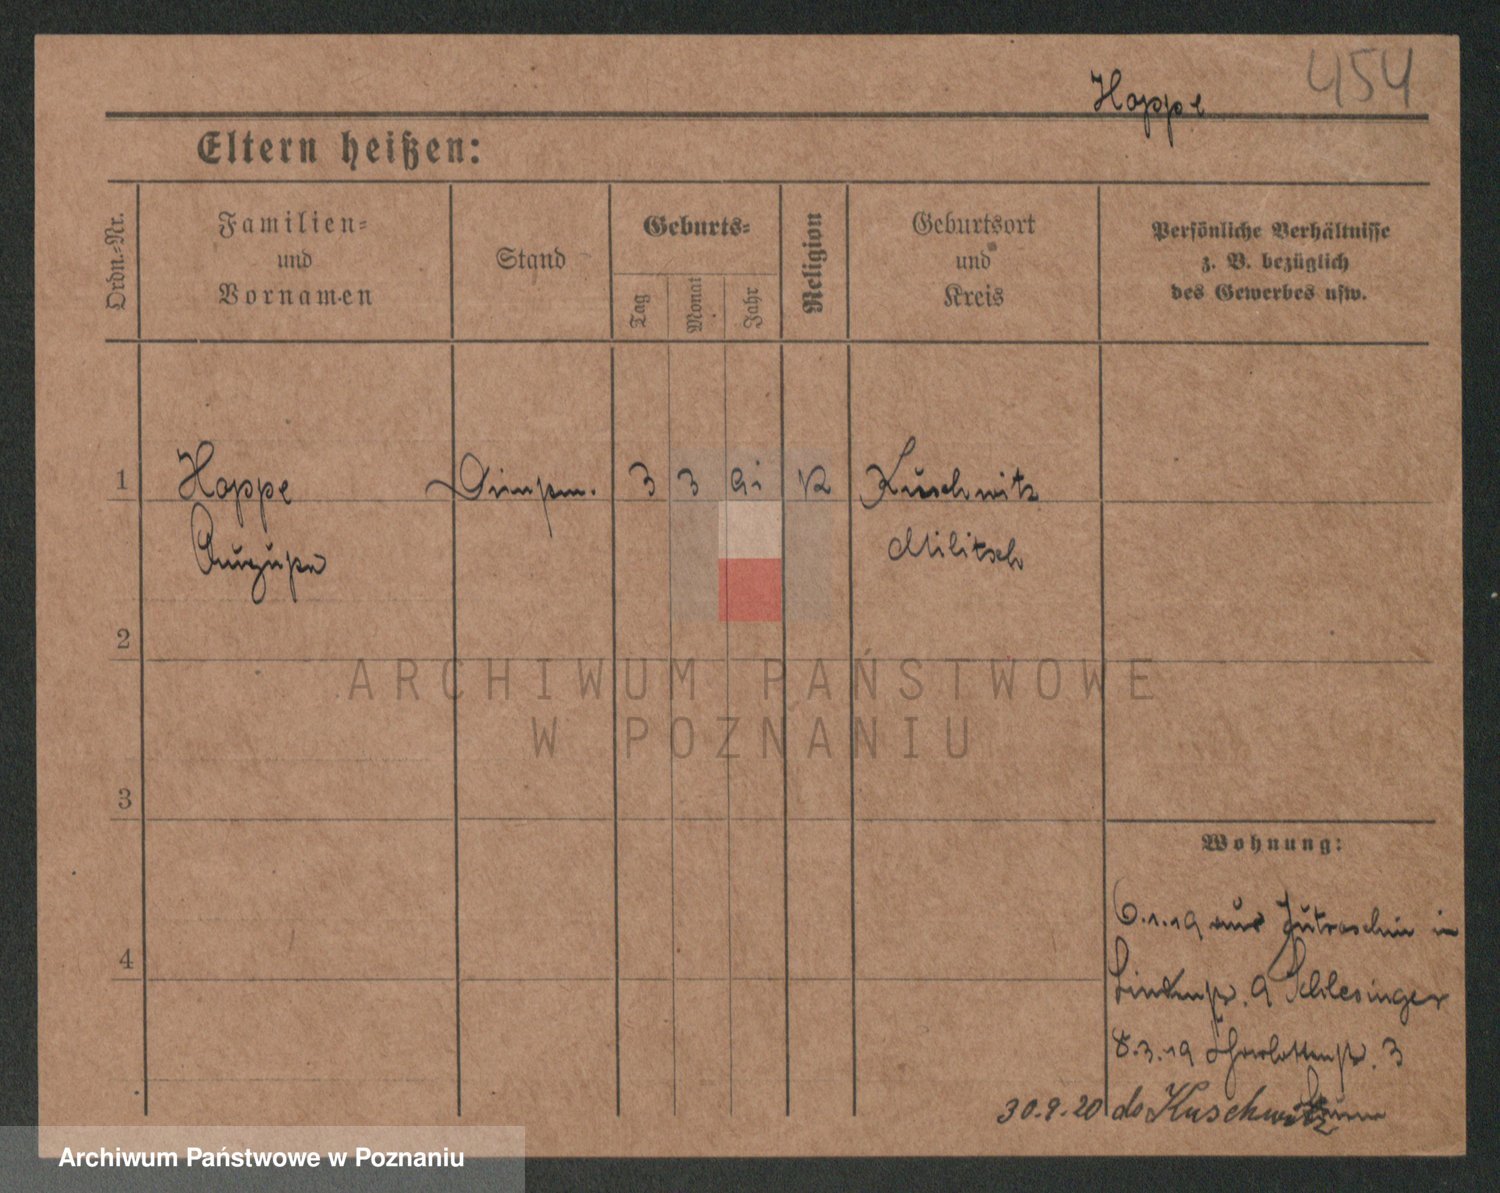 454
Hoppe
Eltern heißen:
Ordn.-Nr.
Familien-
und
Vornamen
Stand
Geburts-
Tag
Monat
Jahr
Religion
Geburtsort
und
Kreis
Persönliche Verhältnisse
z. B. bezüglich
des Gewerbes usw.
1 Hoppe 3 3 K Kuschwitz
Militsch
2
3
4
ARCHIWUM PAŃSTWOWE
W POZNANIU
Wohnung:
6.1.19 aus Jutroschin in
Lindenstr. 9 Schlesinger
8.3.19 Charlottenstr. 3
30.9.20 Kuschwitz
Archiwum Państwowe w Poznaniu